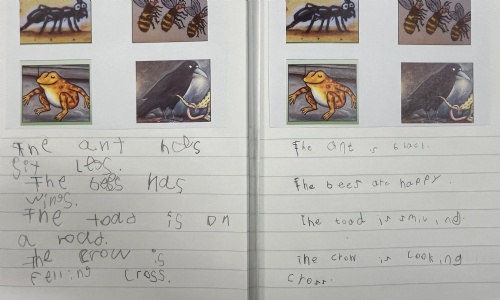 The ant has
six Legs.
The bees has
wings.
The toad is on
a road.
the crow is
felling cross.
The ant is black.
The bees are happy.
The toad is smiling.
the crow is looking
cross.